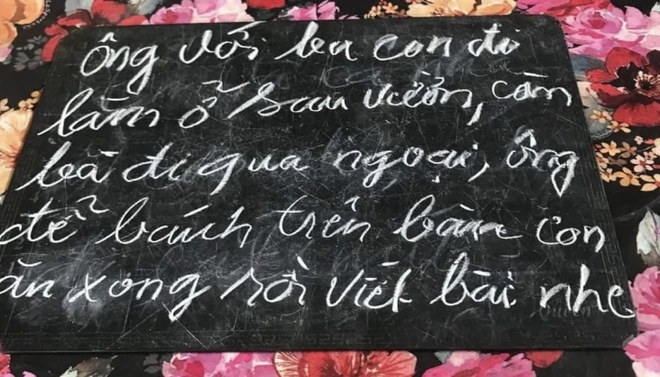 ông với ba con đi
làm ở sau vườn, còn
bà đi qua ngoại, ông
để bánh trên bàn con
ăn xong rồi viết bài nhe